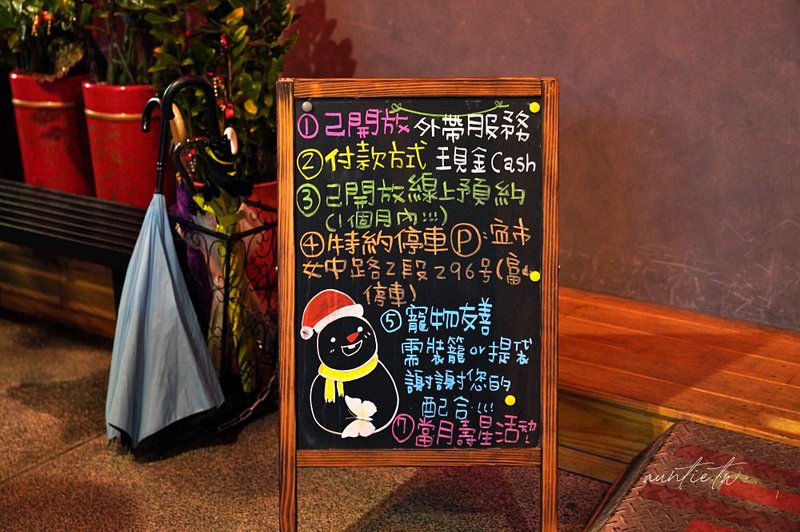 ① 己開放 外帶服務
② 付款方式 現金 Cash
③ 己開放線上預約
(1個月內!!!)
④ 特約停車 Ⓟ:宜市
女中路2段296号(富山
停車)
⑤ 寵物友善
需裝籠or提袋
謝謝您的
配合!!!
⑦ 當月壽星活動
auntie.tw